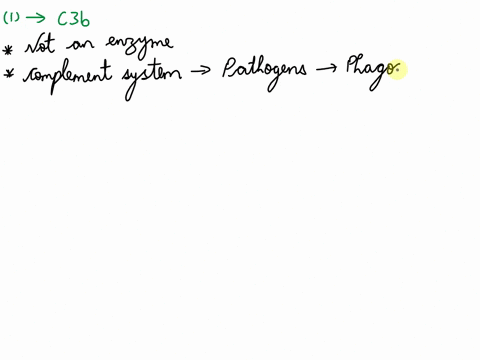 (1) → C3b
* Not an enzyme
* Complement system → Pathogens → Phago